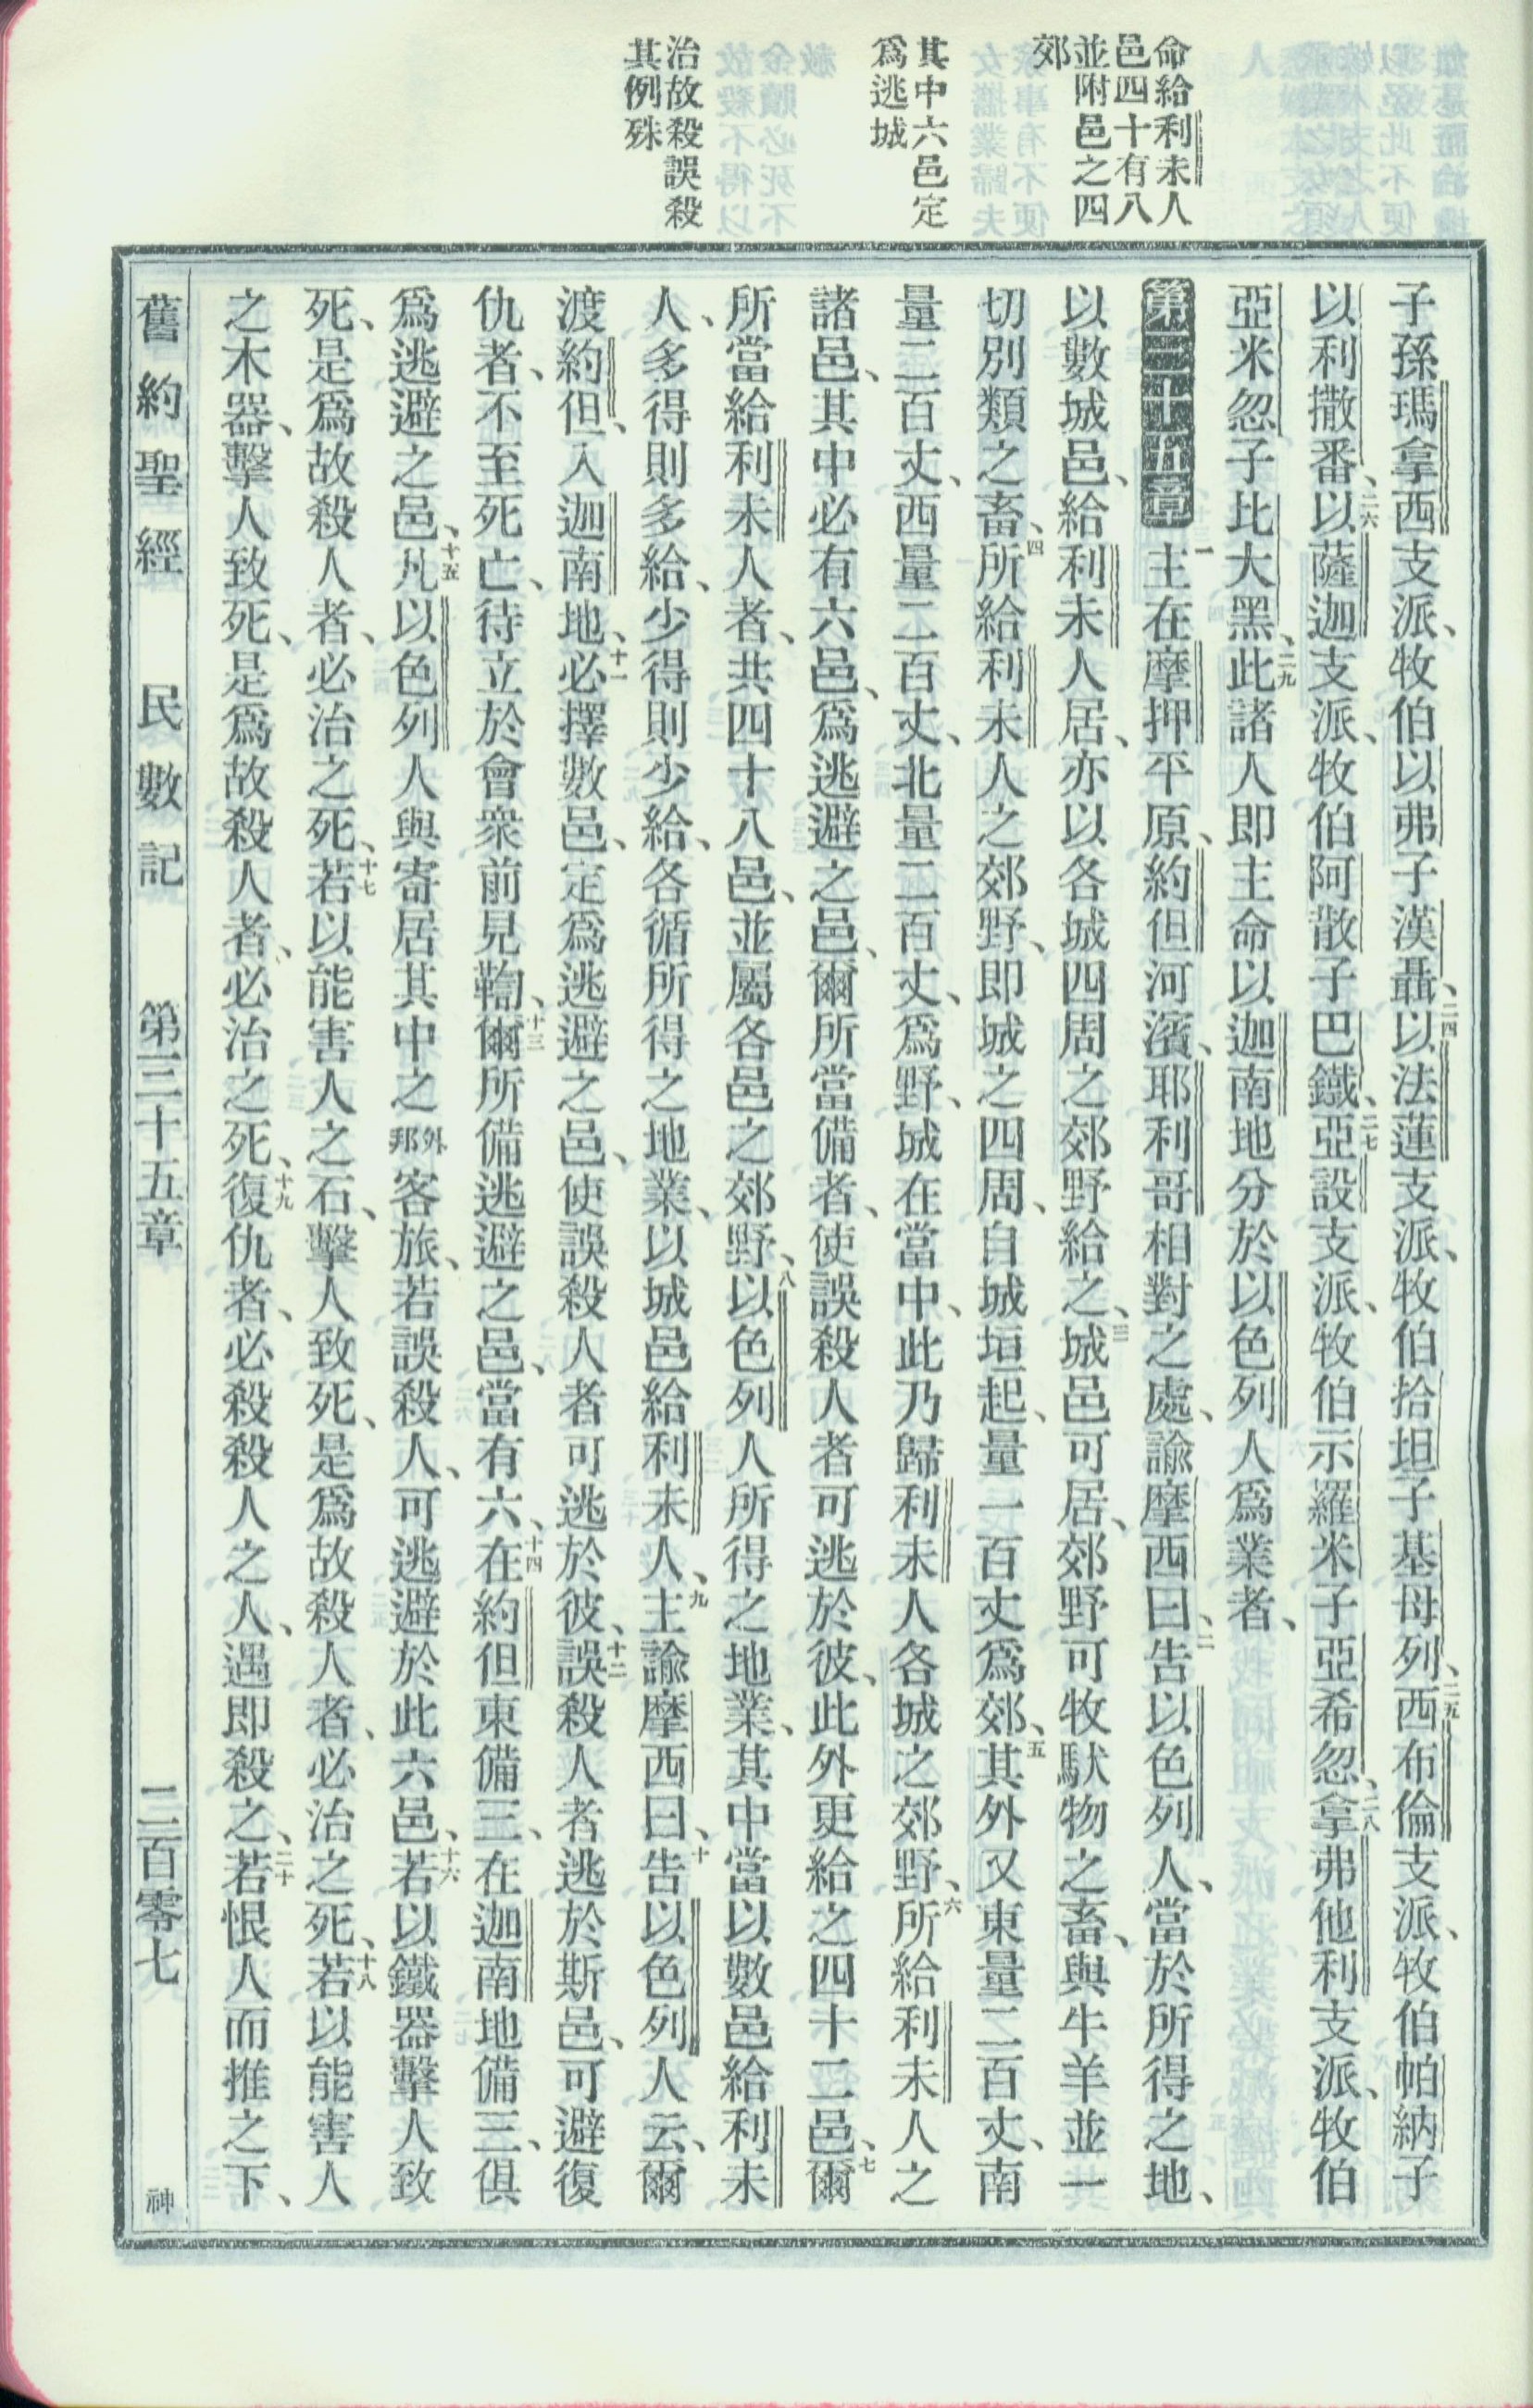 命給利未人
邑四十有八
並附邑之四
郊
其中六邑定
爲逃城
治故殺誤殺
其例殊
子孫瑪拿西支派、牧伯以弗子漢聶、二四以法蓮支派、牧伯拾坦子基母列、二五西布倫支派、牧伯帕納子
以利撒番、二六以薩迦支派、牧伯阿散子巴鐵、二七亞設支派、牧伯示羅米子亞希忽、二八拿弗他利支派、牧伯
亞米忽子比大黑、二九此諸人即主命以迦南地分於以色列人爲業者、
第三十五章 一主在摩押平原、約但河濱、耶利哥相對之處、諭摩西曰、二告以色列人、當於所得之地、
以數城邑、給利未人居、亦以各城四周之郊野給之、三城邑可居、郊野可牧馱物之畜、與牛羊並一
切別類之畜、四所給利未人之郊野、即城之四周、自城垣起、量一百丈爲郊、五其外又東量二百丈、南
量二百丈、西量二百丈、北量二百丈、爲野、城在當中、此乃歸利未人各城之郊野、六所給利未人之
諸邑、其中必有六邑、爲逃避之邑、爾所當備者、使誤殺人者可逃於彼、此外更給之四十二邑、七爾
所當給利未人者、共四十八邑、並屬各邑之郊野、八以色列人所得之地業、其中當以數邑給利未
人、多得則多給、少得則少給、各循所得之地業、以城邑給利未人、九主諭摩西曰、十告以色列人云、爾
渡約但、入迦南地、十一必擇數邑、定爲逃避之邑、使誤殺人者可逃於彼、十二誤殺人者逃於斯邑、可避復
仇者、不至死亡、待立於會衆前見鞫、十三爾所備逃避之邑、當有六、十四在約但東備三、在迦南地備三、俱
爲逃避之邑、十五凡以色列人與寄居其中之外邦客旅、若誤殺人、可逃避於此六邑、十六若以鐵器擊人致
死、是爲故殺人者、必治之死、十七若以能害人之石、擊人致死、是爲故殺人者、必治之死、十八若以能害人
之木器、擊人致死、是爲故殺人者、必治之死、十九復仇者、必殺殺人之人、遇即殺之、二十若恨人而推之下、
舊約聖經 民數記 第三十五章 二百零七 神